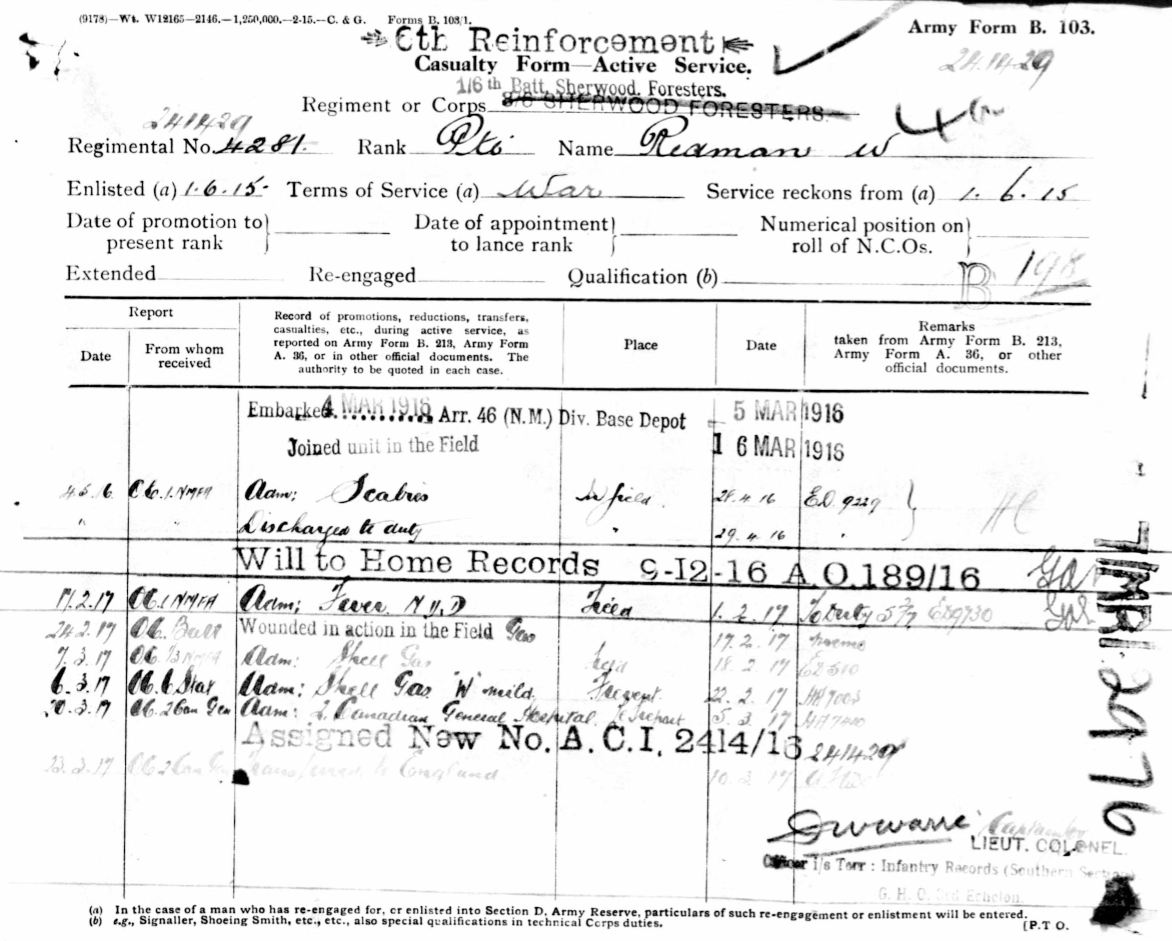 (9178)—Wt. W12165—2146.—1,250,000.—2-15.—C. & G. Forms B. 103/1.
Army Form B. 103.
6th Reinforcement
241429
Casualty Form—Active Service.
1/6th Batt. Sherwood Foresters.
Regiment or Corps 3/6 SHERWOOD FORESTERS.
241429
Regimental No. 4281. Rank Pte Name Redman W
Enlisted (a) 1.6.15. Terms of Service (a) War Service reckons from (a) 1.6.15
Date of promotion to present rank } Date of appointment to lance rank } Numerical position on roll of N.C.Os. }
Extended Re-engaged Qualification (b)
B 198
Report
Date
From whom received
Record of promotions, reductions, transfers, casualties, etc., during active service, as reported on Army Form B. 213, Army Form A. 36, or in other official documents. The authority to be quoted in each case.
Place
Date
Remarks taken from Army Form B. 213, Army Form A. 36, or other official documents.
Embarked 4 MAR 1916 Arr. 46 (N.M.) Div. Base Depot 5 MAR 1916
Joined unit in the Field 16 MAR 1916
4.5.16 Adm: Scabies In field 28.4.16 ED 9229
" " Discharged to duty " 29.4.16 "
Will to Home Records 9-12-16 A.O.189/16
17.2.17 OC 1 NMFA Adm; Fever N.Y.D Field 1.2.17 To Duty 5/2 ED9730
24.2.17 OC Batt Wounded in action in the Field Gas 17.2.17
7.3.17 Adm: Shell Gas field 18.2.17
6.3.17 Adm: Shell Gas "W" mild. Frevent. 22.2.17
20.3.17 OC 2 Can Gen Adm: 2 Canadian General Hospital. Le Treport 5.3.17
Assigned New No. A.C.I. 2414/16 241429
23.3.17 OC 2 Can Gen Transferred to England 10.3.17
Captain for
LIEUT. COLONEL.
Officer i/s Terr: Infantry Records (Southern Section)
G. H. Q. 3rd Echelon.
(a) In the case of a man who has re-engaged for, or enlisted into Section D, Army Reserve, particulars of such re-engagement or enlistment will be entered.
(b) e.g., Signaller, Shoeing Smith, etc., etc., also special qualifications in technical Corps duties.
[P.T O.